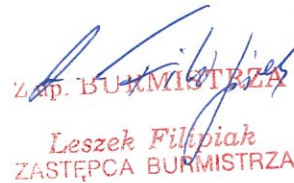 Z up. BURMISTRZA
Leszek Filipiak
ZASTĘPCA BURMISTRZA